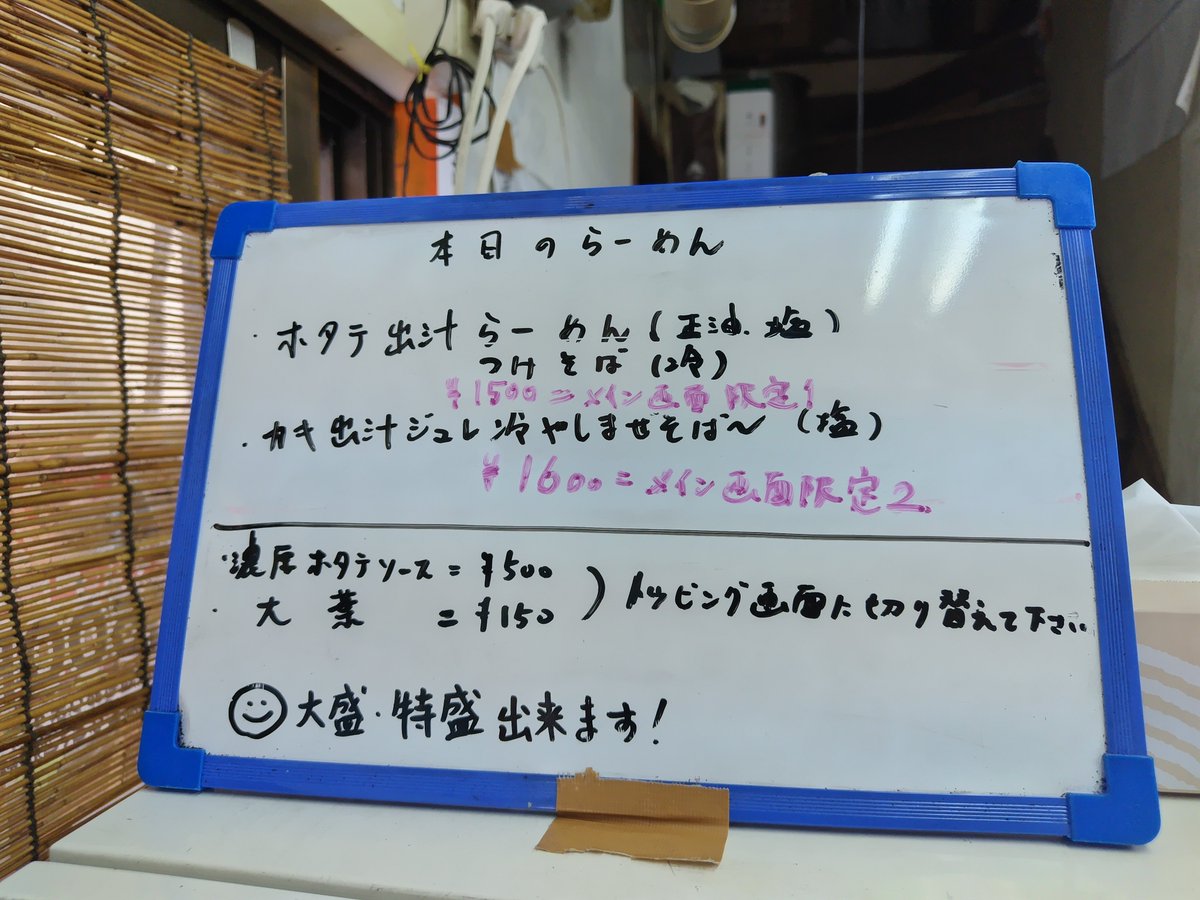 本日のらーめん
・ホタテ出汁らーめん(正油、塩)
つけそば(冷)
¥1500=メイン画面限定1
・カキ出汁ジュレ冷やしまぜそば〜(塩)
¥1600=メイン画面限定2.
・濃厚ホタテソース=¥500
・大葉=¥150
)トッピング画面に切り替えて下さい
大盛・特盛出来ます!